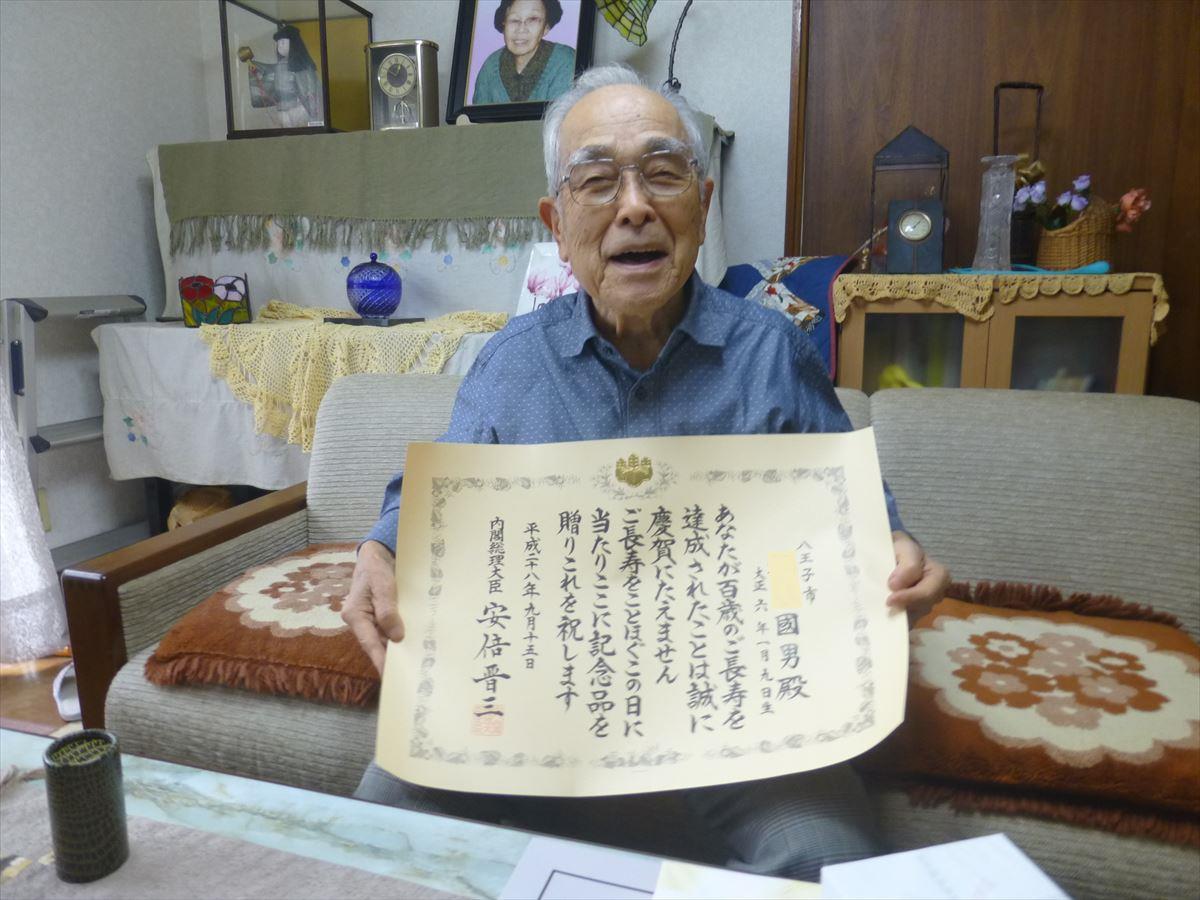 八王子市
國男殿
大正六年一月九日生
あなたが百歳のご長寿を
達成されたことは誠に
慶賀にたえません
ご長寿をことほぐこの日に
当たりここに記念品を
贈りこれを祝します
平成二十八年九月十五日
内閣総理大臣 安倍晋三